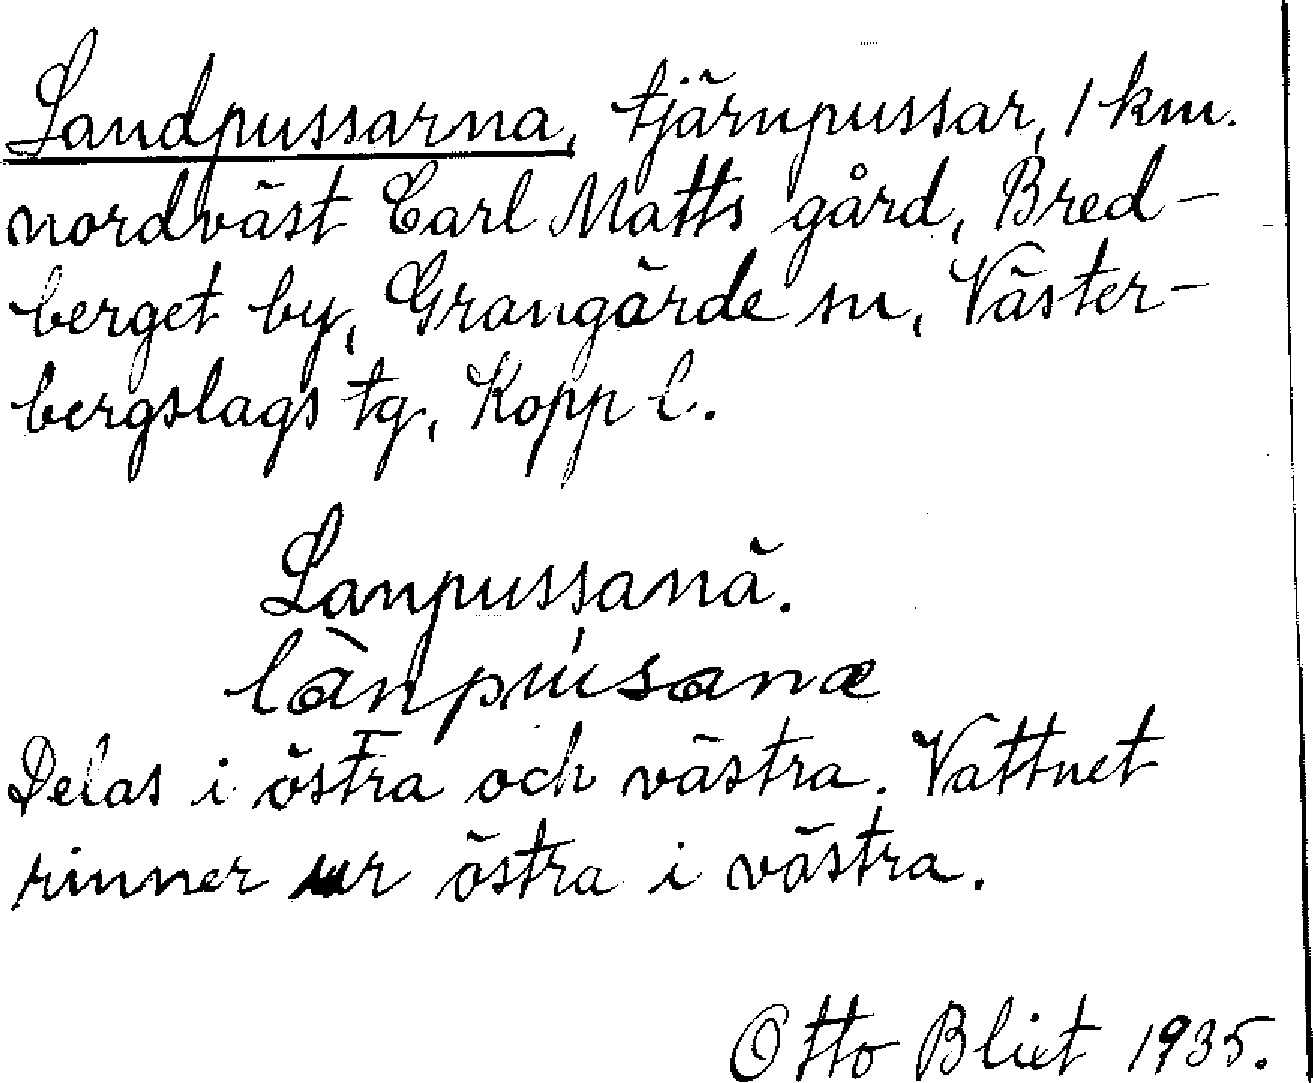 Landpussarna, tjärnpussar, 1 km.
nordväst Carl Matts gård, Bred-
berget by, Grangärde sn, Väster-
bergslags tg, Kopp l.
Lanpussanä.
lànpusanæ
Delas i östra och västra. Vattnet
rinner ur östra i västra.
Otto Blixt 1935.